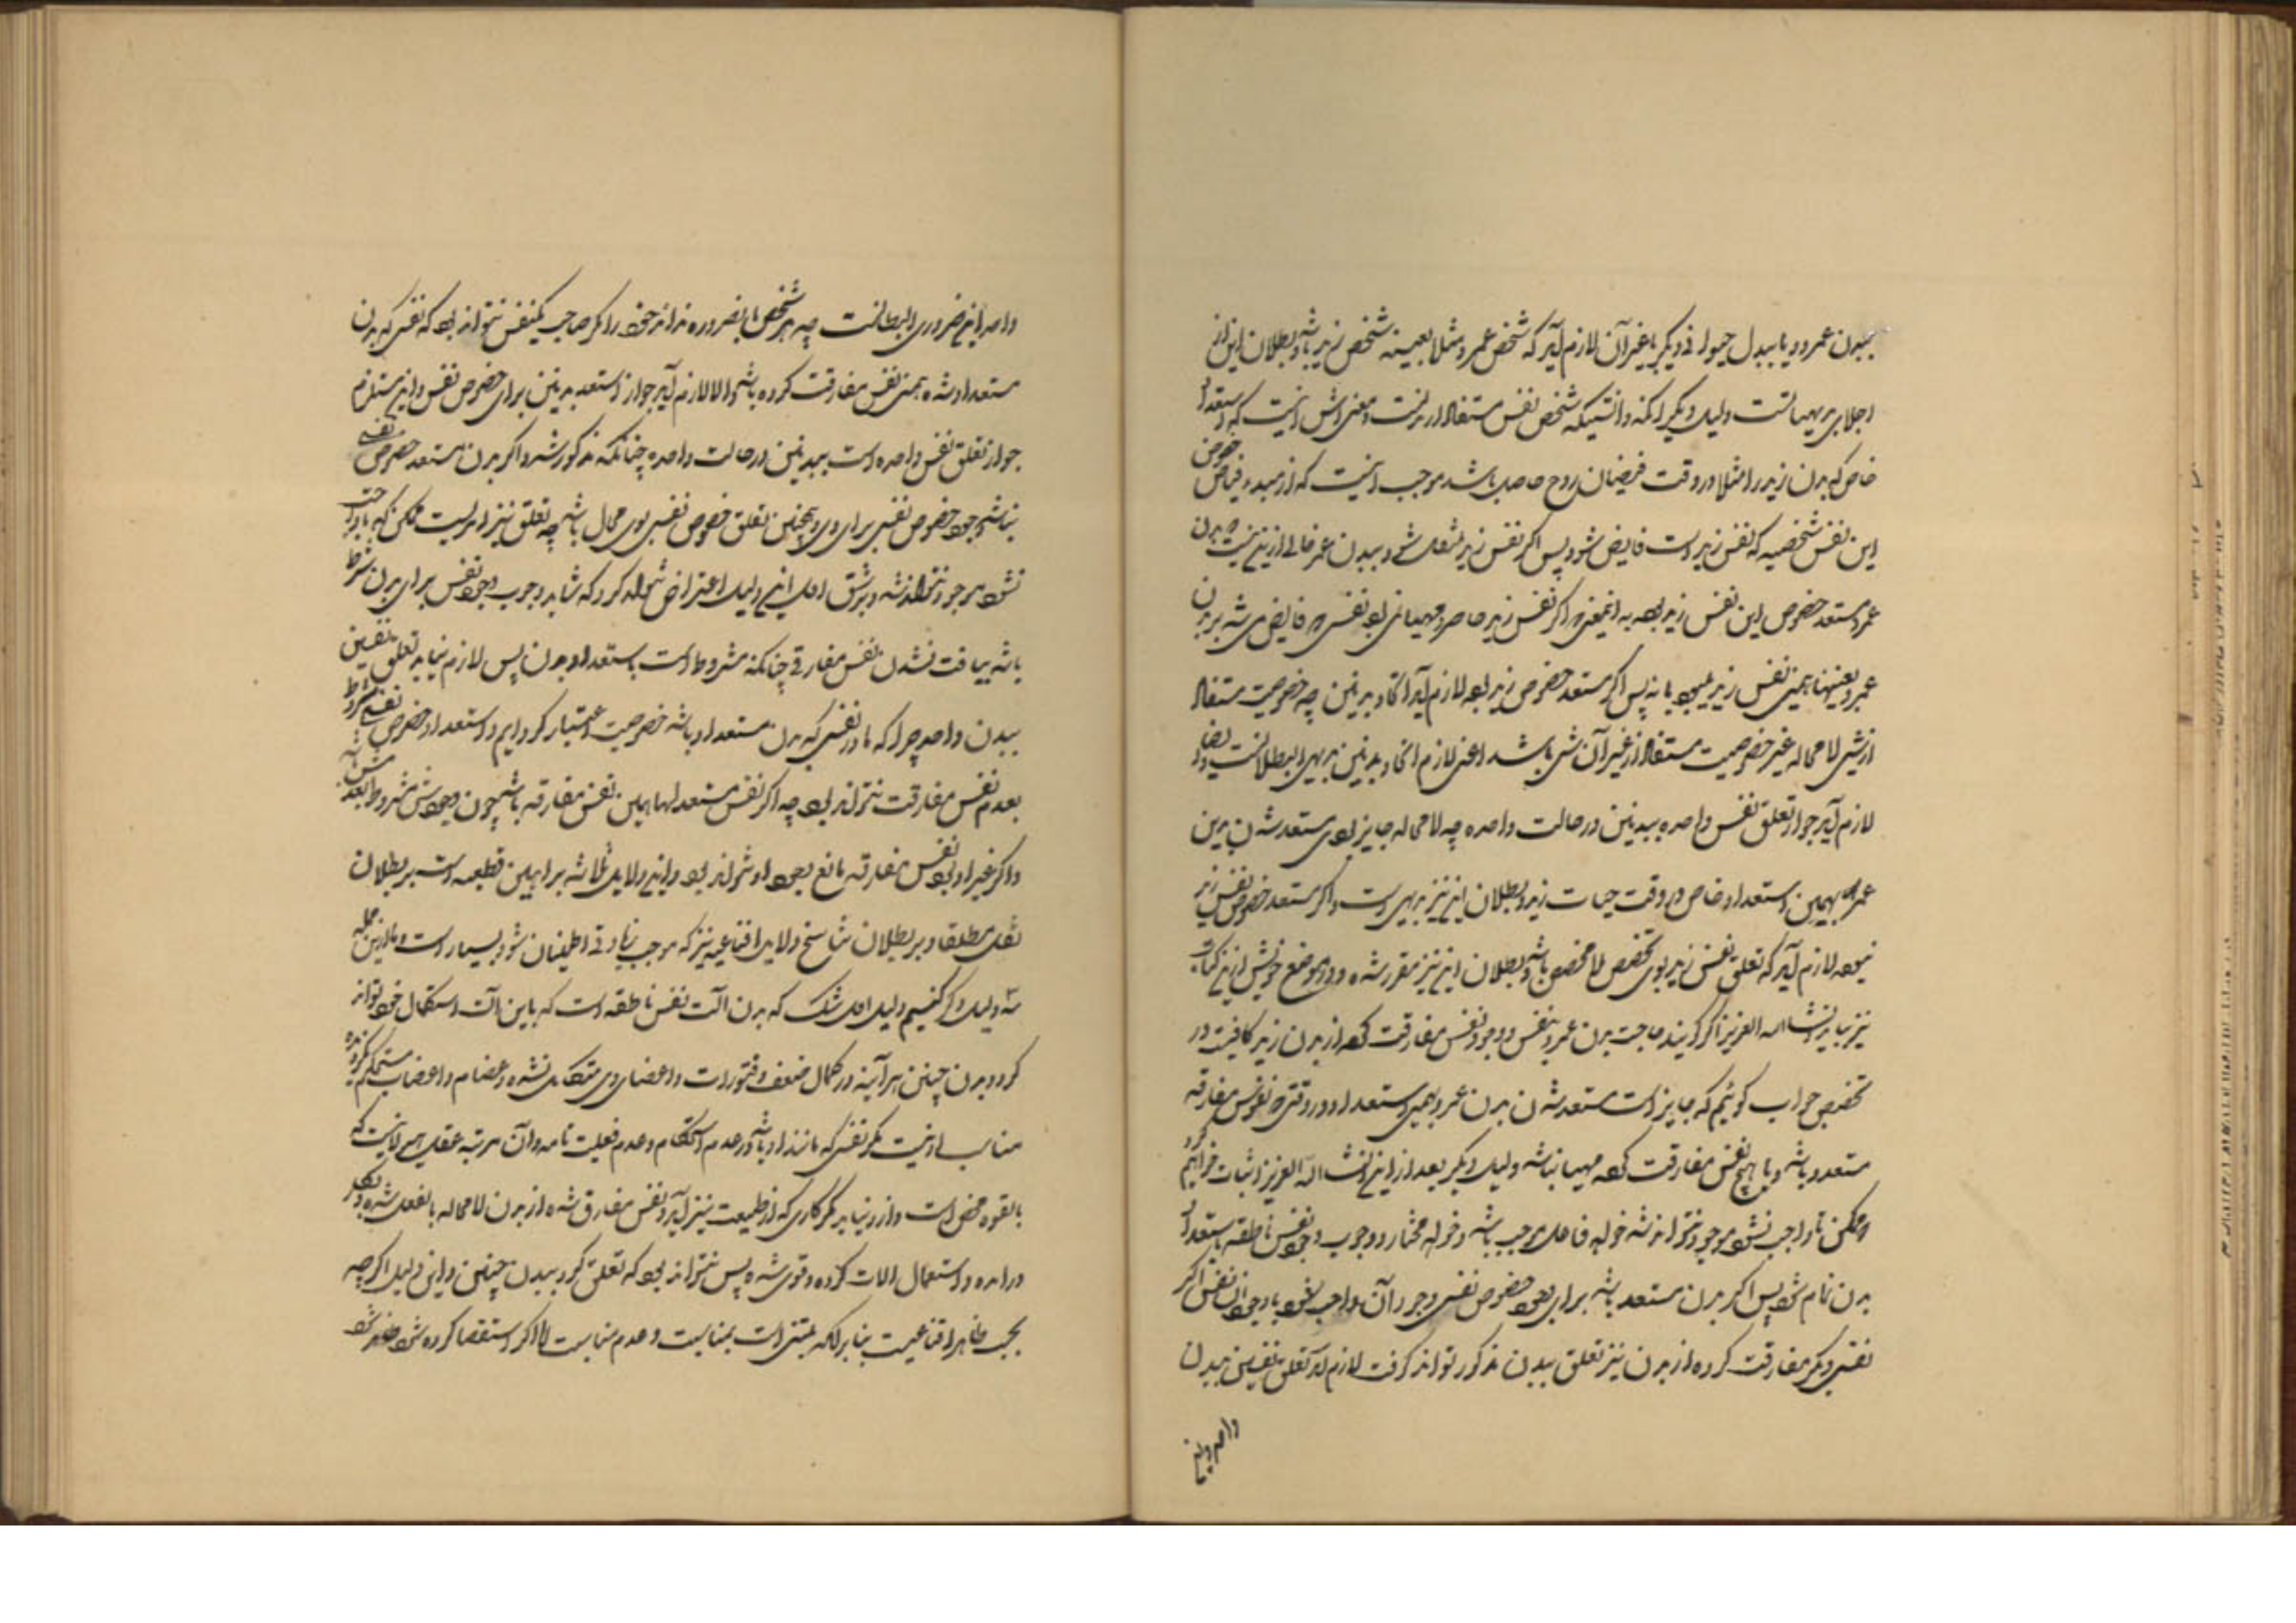 ببدن عمرو و یا ببدل حیوانی دیگر یا غیر آن لازم آید که شخص عمرو مثلا بعینه شخص زید باشد و بطلان این از
اجلای بدیهیاتست دلیل دیگر آنکه دانستیکه شخص نفس مستفاد از بدنست و معنی اش اینست که استعداد
خاص که بدن زید را مثلا در وقت فیضان روح حاصل باشد موجب اینست که از مبدء فیاض خصوص
این نفس شخصیه که نفس زید است فایض شود پس اگر نفس زید منتقل شود ببدن عمرو خالی از این نیست که بدن
عمرو مستعد خصوص این نفس زید بود به اینمعنی که اگر نفس زید حاضر و مهیا نمی بود نفسی که فایض می شد بر بدن
عمرو بعینها همین نفس زید میبود یا نه پس اگر مستعد خصوص زید بود لازم آید اتحاد بدنین چه خصوصیت مستفاد
از شیئی لا محاله غیر خصوصیت مستفاد از غیر آن شی باشد اعنی لازم اتحاد بدنین بدیهی البطلانست و ایضا
لازم آید جواز تعلق نفس واحده ببدنین در حالت واحده چه لا محاله جایز بودی مستعد شدن بدن
عمرو بهمین استعداد خاص در وقت حیات زید و بطلان این نیز بدیهی است و اگر مستعد خصوص نفس زید
نبود لازم آید که تعلق نفس زید بوی تخصیص لا مخصص باشد و بطلان این نیز مقرر شده و در موضع خویش از این کتاب
نیز بیاید انشاء الله العزیز اگر گویند حاجت بدن عمرو بنفس و وجود نفس مفارقت کرده از بدن زید کافیست در
تخصیص جواب گوئیم که جایز است مستعد شدن بدن عمرو بهمین استعداد در وقتی که نفوس مفارقه
متعدد باشد و یا هیچ نفس مفارقت کرده مهیا نباشد دلیل دیگر بعد از این انشاء الله العزیز اثبات خواهیم کرد
که ممکن تا واجب نشود موجود نتواند شد خواه فاعل موجب باشد و خواه مختار و وجوب وجود نفس ناطقه باستعداد
بدن تمام شود پس اگر بدن مستعد باشد برای وجود خصوص نفسی وجود آن واجب شود با وجود آن نفس اگر
نفسی دیگر مفارقت کرده از بدن نیز تعلق ببدن مذکور تواند گرفت لازم آید تعلق نفسین ببدن
واحد و این
واحد و این ضروری البطلانست چه هر شخص بالضروره نداند خود را مگر صاحب یکنفس نتواند بود که نفسی که بدن
مستعد او شده همین نفس مفارقت کرده باشد و الا لازم آید جواز استعد بدنین برای خصوص نفس و این مستلزم
جواز تعلق نفس واحده است ببدنین در حالت واحده چنانکه مذکور شد و اگر بدن مستعد خصوص نفسی
نباشد وجود خصوص نفسی برای وی و همچنین تعلق خصوص نفسی بوی محال باشد چه تعلق نیز امریست ممکن که تا واجب
نشود موجود نتواند شد و بر شق اول این دلیل اعتراض نتواند کرد که شاید وجوب وجود نفس برای بدن مشروط
باشد بیافت نشدن نفس مفارقی چنانکه مشروط است باستعداد بدن پس لازم نیاید تعلق نفسین
ببدن واحد چرا که ما در نفسی که بدن مستعد او باشد خصوصیت اعتبار کردیم و استعداد خصوص نفسی مشروط
بعدم نفس مفارقت نتواند بود چه اگر نفس مستعد لها همین نفس مفارقه باشد چون وجودش مشروط بعدمش باشد
و اگر غیر او بود نفس مفارقه مانع وجود او نتواند بود و این دلایل ثلاثه براهین قطعیه است بر بطلان
نقل مطلقا و بر بطلان تناسخ و لایل اقناعیه نیز که موجب زیادتی اطمینان شود بسیار است و ما از این جمله
سه دلیل ذکر کنیم دلیل اول شک که بدن آلت نفس ناطقه است که باین آلت استکمال خود تواند
کرد و بدن جنین هر آینه در کمال ضعف و فتور است و اعضای وی متکامل نشده و عضام و اعصاب مستحکم نگردیده
مناسب او نیست مگر نفسی که مانند او باشد در عدم استحکام و عدم فعلیت تامه و آن مرتبه عقل هیولانیست که
بالقوه محض است و از او نیاید مگر کاری که از طبیعت نیز آید و نفس مفارق شده از بدن لا محاله بالفعل شده و بکار
در آمده و استعمال الات کرده و قوی شده پس نتواند بود که تعلق گیرد ببدن جنین و این دلیل اگر چه
بحسب ظاهر اقناعیست بنا بر آنکه مبتنی است بمناسبت و عدم مناسبت لکن اگر استقصا کرده شود ظاهر شود